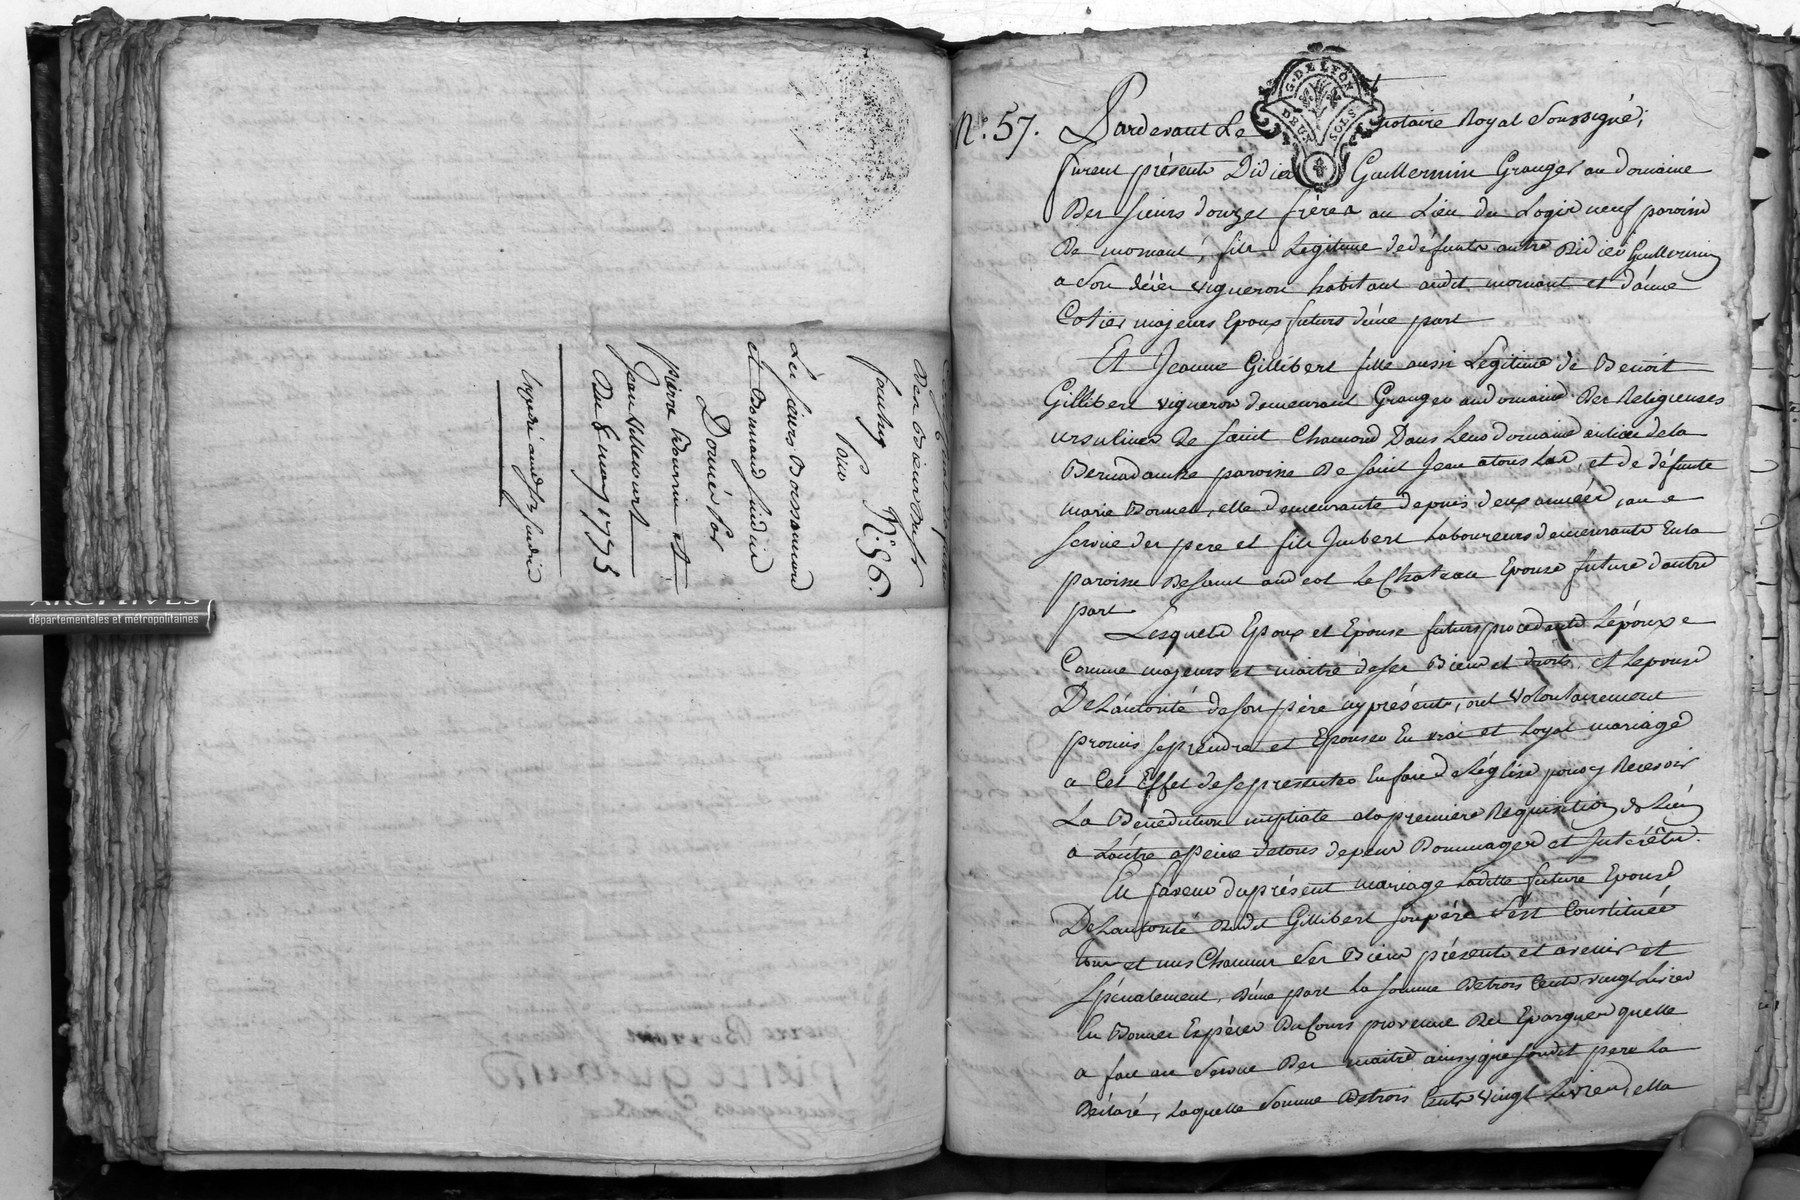 ARCHIVES
départementales et métropolitaines
faulne
pour N° 56.
Les sieurs Boissonnard
et Bonnand
Donné par
pierre Bonnin et
Jean Villemart
Du 8 may 1773
G. DE LYON
DEUX SOLS
N°. 57. Pardevant Le notaire Royal Soussigné,
furent présents Didier Guillermin Granger au domaine
Des sieurs donzet frères au Lieu du Logis neuf paroisse
De mornant, fils Légitime de défunts autre Didier Guillermin
a Son décès vigneron habitant audit mornant et d'anne
Cotier majeurs Epoux futurs d'une part
Et Jeanne Gillibert fille aussi Légitime de Benoit
Gillibert vigneron demeurant Granger au domaine Des Religieuses
ursulines de saint Chamond Dans Leur domaine au lieu de la
paroisse De saint Jean atouslas et de défunte
marie Bonnet, elle demeurante depuis deux années, au
service des pere et fils Imbert Laboureurs demeurants En la
paroisse De saint andeol Le Chateau Epouse future d'autre
part
Lesquels Epoux et Epouse futurs procedants L'époux
Comme majeurs et maitre de ses Biens et droits, et Lepouse
De L'autorité de son père cy présent, ont volontairement
promis se prendre et Epouser En vrai et Loyal mariage
a Cet Effet de se presenter En face de L'église pour y Recevoir
La Bénédiction nuptiale a la premiere Requisition de L'un
a Lautre a peine de tous depens Dommages et Intérêts.
En faveur du présent mariage Ladite future Epouse
De L'autorité Dudit Gillibert son père s'est Constituée
tous et uns Chacuns Ses Biens présents et avenir et
spécialement, D'une part La somme De trois Cents vingt Livres
En Bonnes Espéces Du Cours provenue Des Epargnes quelle
a fait au Service Des maitres ainsy que sondit pere La
Déclaré, Laquelle Somme De trois Cents vingt Livres, ella